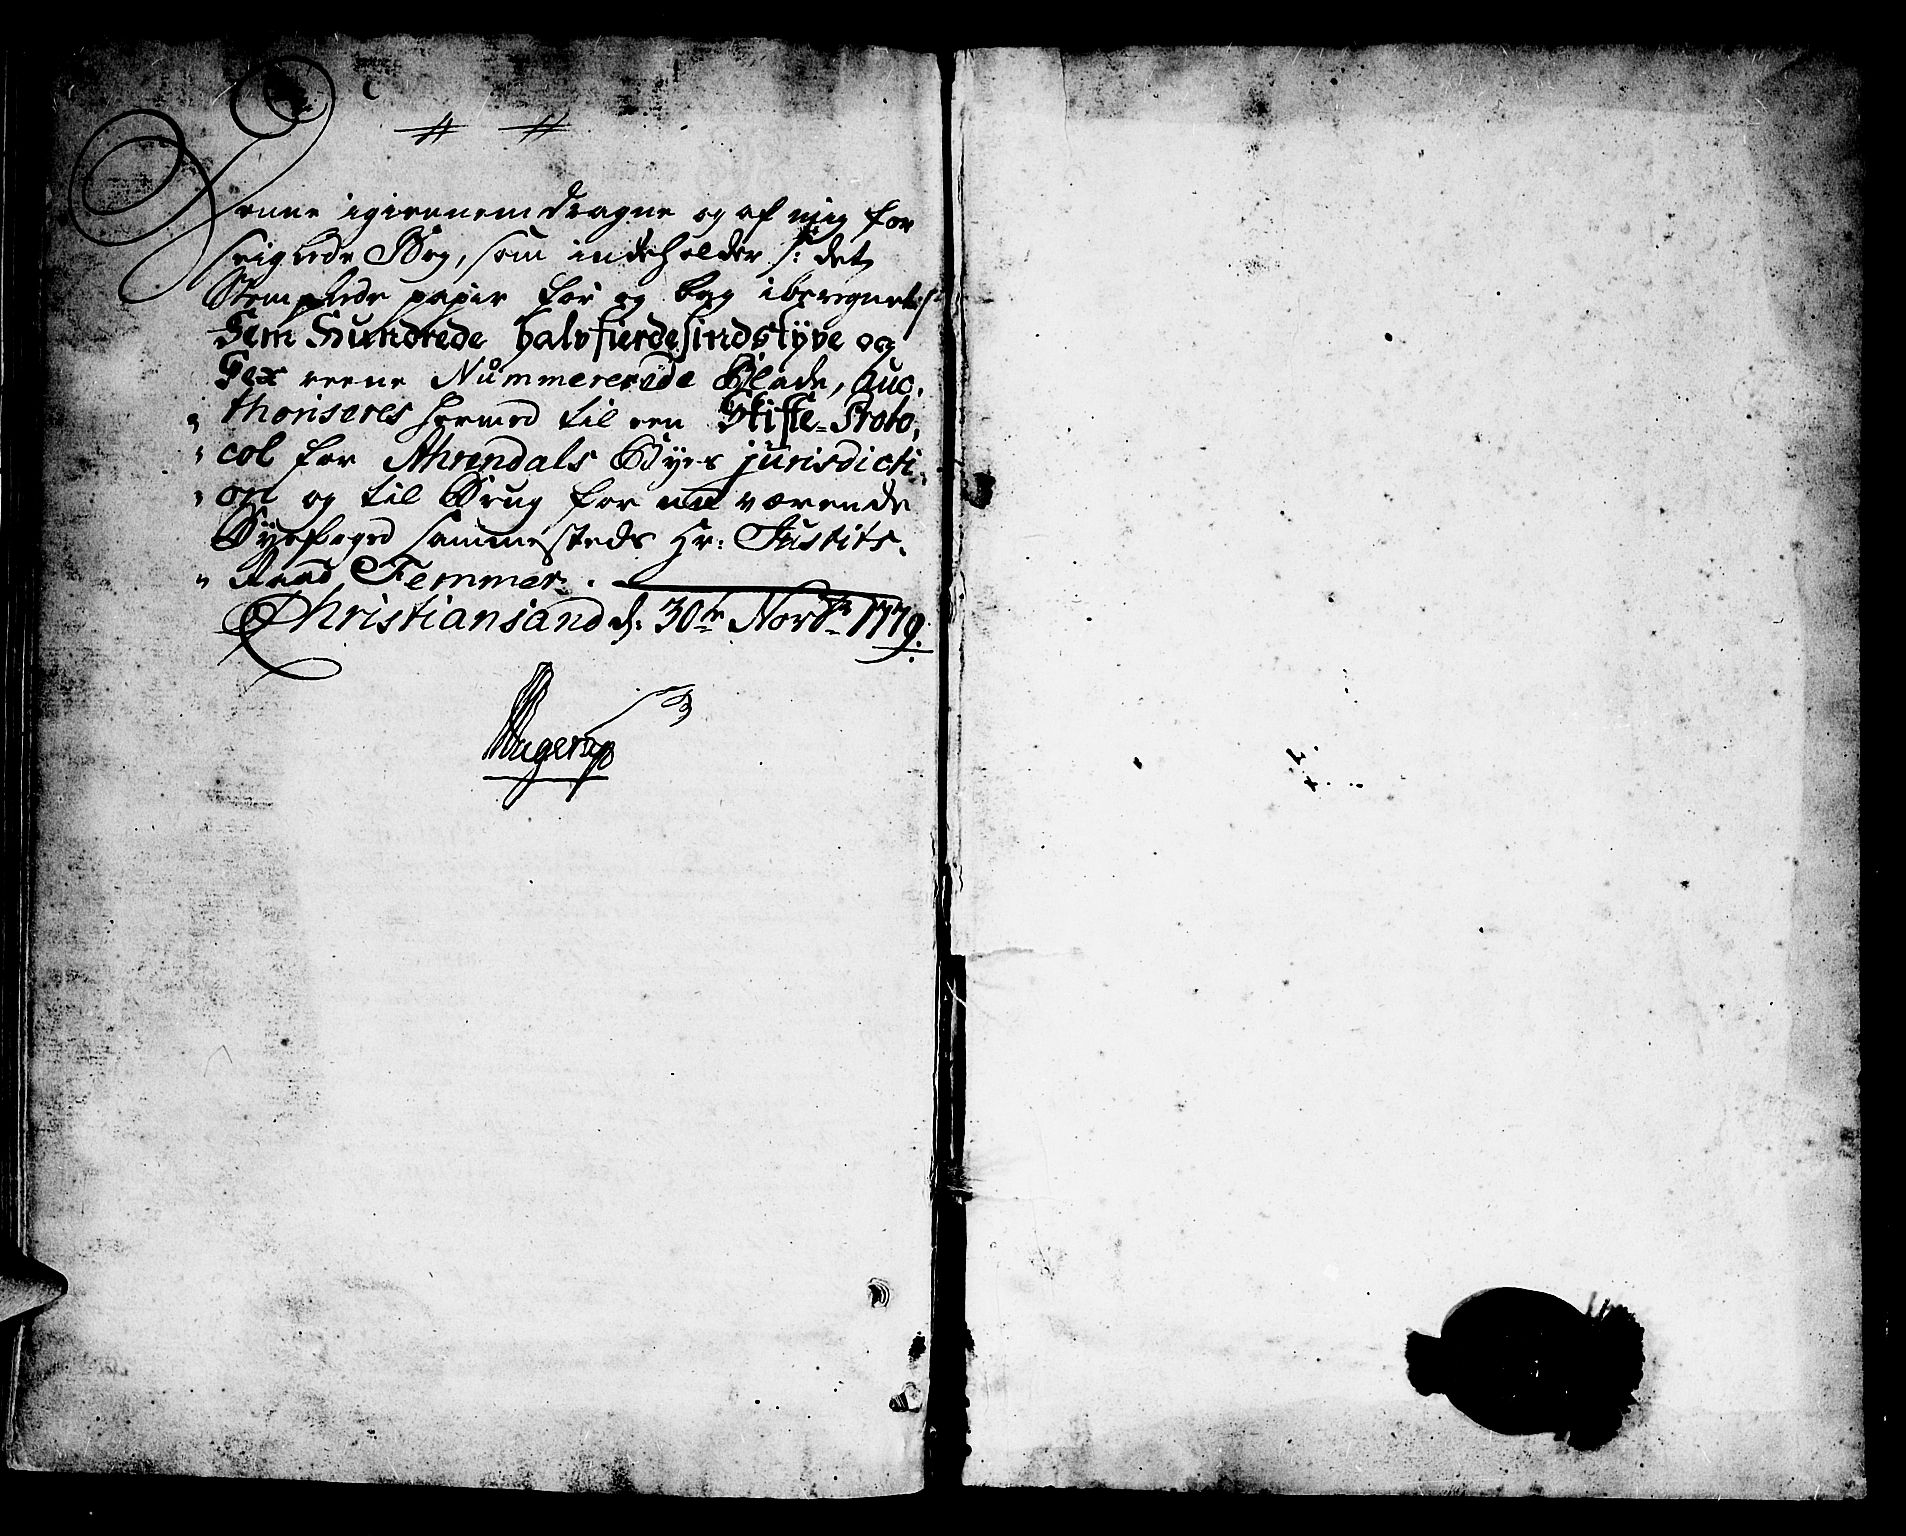 Denne igiennemdragne og af mig for
seiglede Bog, som indeholder /: det
Stemplede papir for og bag iberegnet :/
Fem Hundrede halvfierdesindstyve og
Sex reene Nummererede Blade, auc,
thoriseres hermed til een Skifte-Proto,
col for Ahrendals Byes jurisdicti,
on og til Brug for nu værende
Byefoged sammesteds Hr: Justits,
Raad Femmer.
Christiansand d: 30te Novbr 1779.
Hagerup